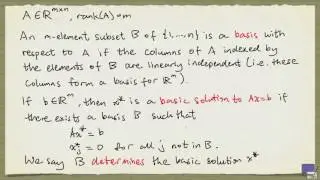 A ∈ ℝ^{m×n}, rank(A)=m
An m-element subset B of {1,...,n} is a basis with
respect to A if the columns of A indexed by
the elements of B are linearly independent (i.e. these
columns form a basis for ℝ^m).
If b ∈ ℝ^m, then x* is a basic solution to Ax=b if
there exists a basis B such that
Ax* = b
x*_j = 0 for all j not in B.
We say B determines the basic solution x*